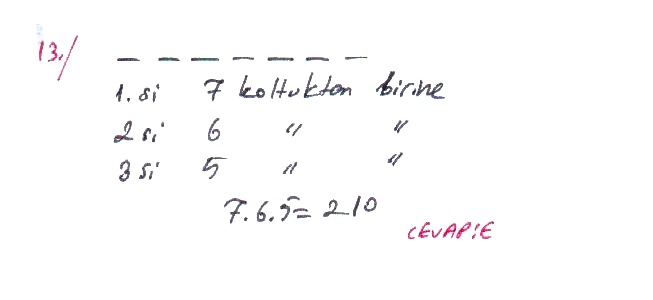 13./ _ _ _ _ _ _ _
1. si 7 koltuktan birine
2 si 6 " "
3 si 5 " "
7.6.5= 210
CEVAP:E